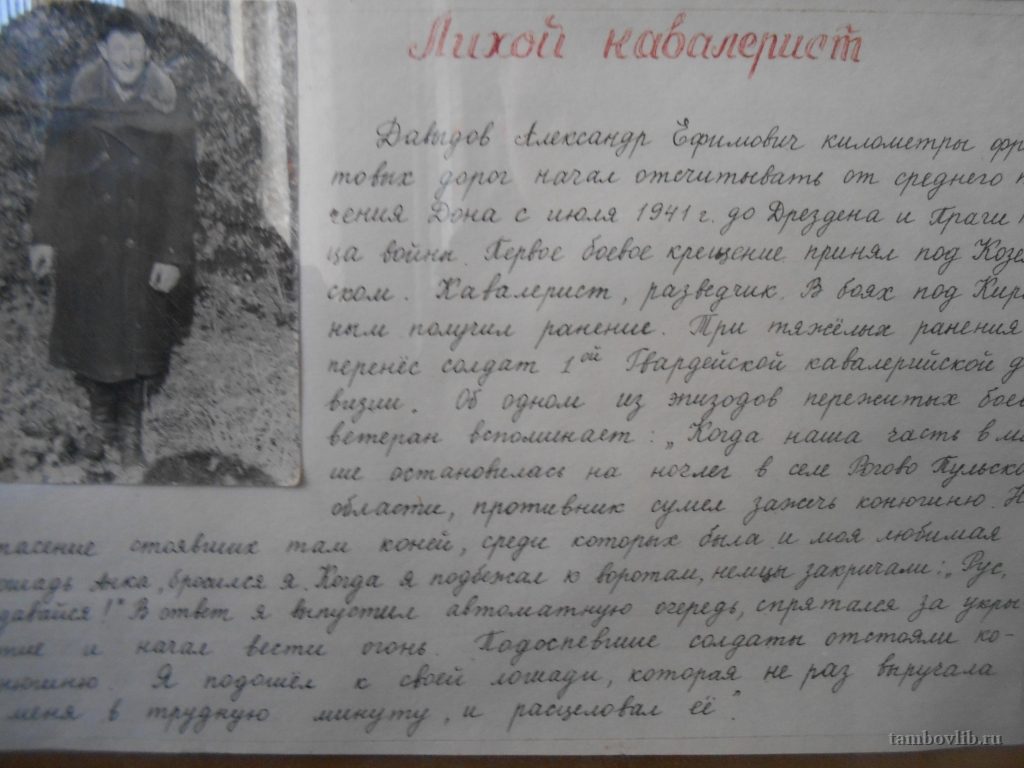 Лихой кавалерист
Давыдов Александр Ефимович километры фро
товых дорог начал отсчитывать от среднего
чения Дона с июля 1941 г. до Дрездена и Праги
ца войны. Первое боевое крещение принял под Козе
ском. Кавалерист, разведчик. В боях под Кир
ным получил ранение. Три тяжёлых ранения
перенёс солдат 1ой Гвардейской кавалерийской д
визии. Об одном из эпизодов пережитых боев
ветеран вспоминает: „Когда наша часть в
ше остановилась на ночлег в селе Рогово Тульско
области, противник сумел зажечь конюшню. Н
пасение стоявших там коней, среди которых была и моя любимая
ошадь Анка, бросился я. Когда я подбежал к воротам, немцы закричали: „Рус,
давайся!" В ответ я выпустил автоматную очередь, спрятался за укры
тие и начал вести огонь. Подоспевшие солдаты отстояли ко-
нюшню. Я подошёл к своей лошади, которая не раз выручала
меня в трудную минуту, и расцеловал её".
tambovlib.ru